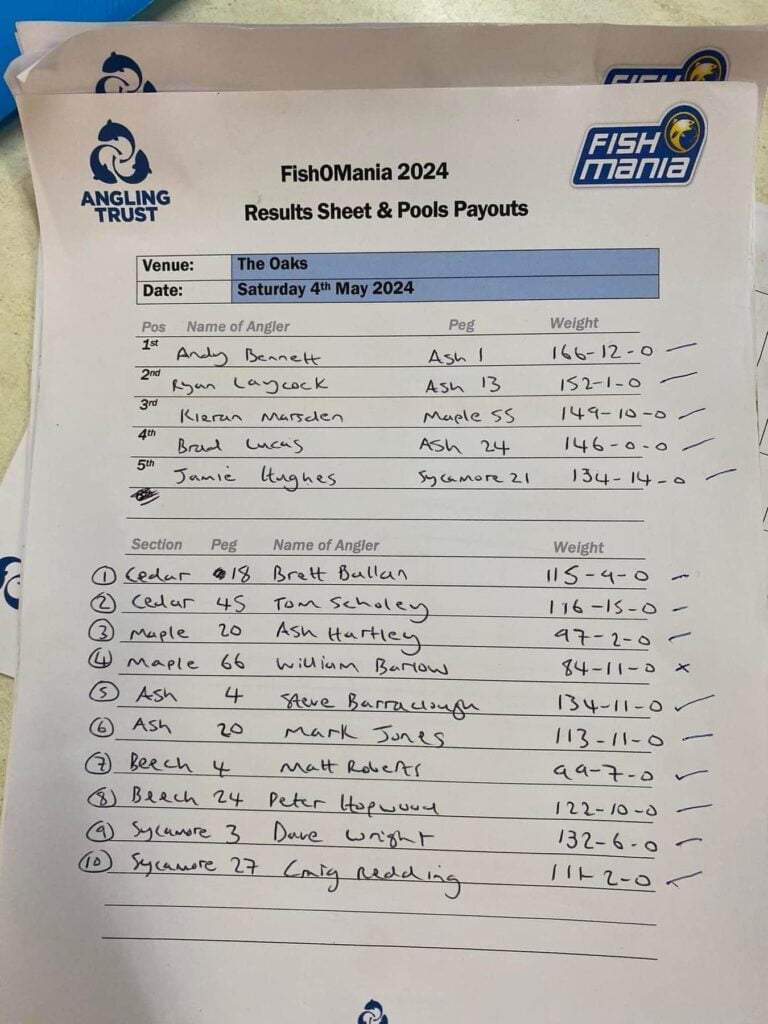 FISH
ANGLING
TRUST
FISH
mania
FishOMania 2024
Results Sheet & Pools Payouts
Venue: The Oaks
Date: Saturday 4th May 2024
Pos Name of Angler Peg Weight
1st Andy Bennett Ash 1 166-12-0
2nd Ryan Laycock Ash 13 152-1-0
3rd Kieran Marsden Maple 55 149-10-0
4th Brad Lucas Ash 24 146-0-0
5th Jamie Hughes Sycamore 21 134-14-0
Section Peg Name of Angler Weight
1 Cedar 18 Brett Ballan 115-9-0
2 Cedar 45 Tom Scholey 116-15-0
3 Maple 20 Ash Hartley 97-2-0
4 Maple 66 William Barlow 84-11-0 x
5 Ash 4 Steve Barraclough 134-11-0
6 Ash 20 Mark Jones 113-11-0
7 Beech 4 Matt Roberts 99-7-0
8 Beech 24 Peter Hopwood 122-10-0
9 Sycamore 3 Dave Wright 132-6-0
10 Sycamore 27 Craig Redding 111-2-0